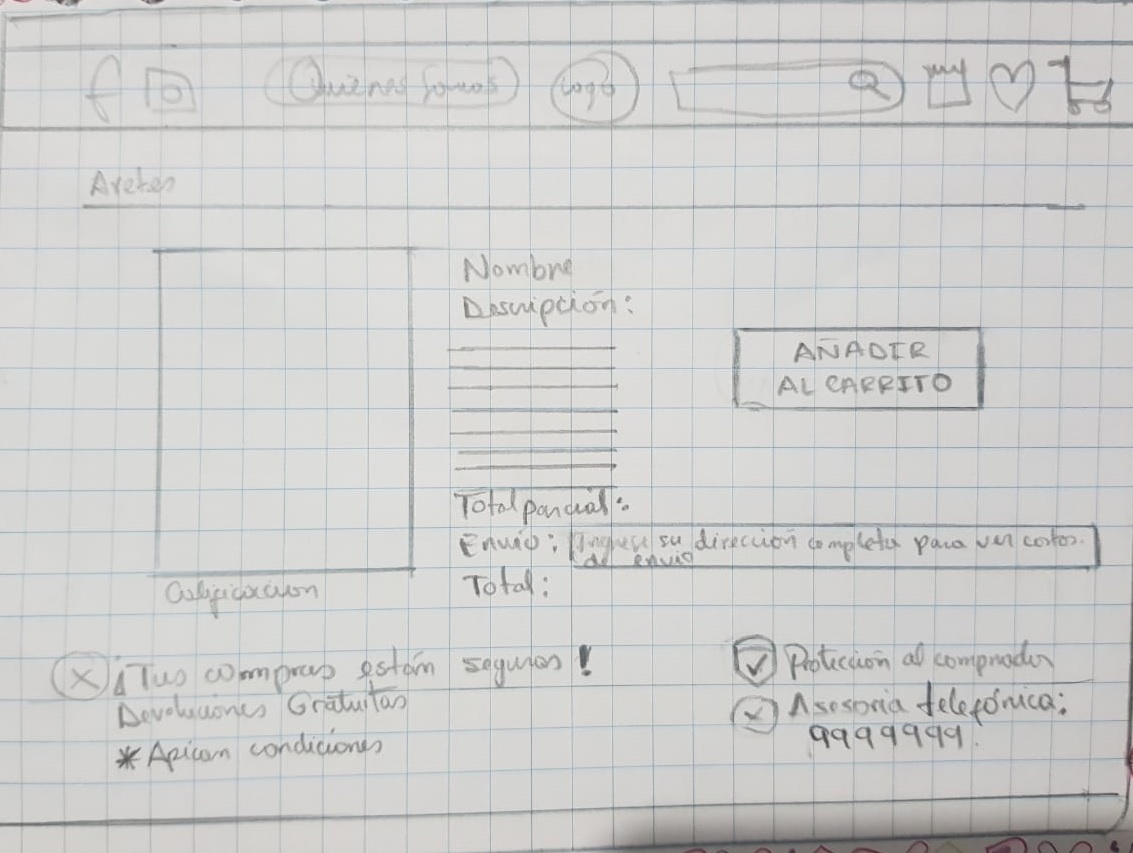 Quienes Somos Logo
Aretes
Nombre
Descripción:
AÑADIR
AL CARRITO
Total parcial:
Envio: Ingrese su dirección completa para ver costos.
de envio
Total:
Calificacion
¡Tus compras están seguras!
Devoluciones Gratuitas
* Apican condiciones
Protección al comprador
Asesoria telefónica:
9999999.